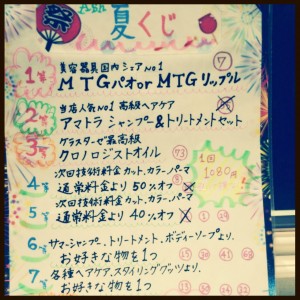 祭
夏くじ
美容器具国内シェアNO1
⑦
1等 MTGパオor MTGリップル
当店人気NO1 高級ヘアケア
2等 アマトラ シャンプー&トリートメントセット
ケラスターゼ最高級
3等 クロノロジストオイル
1回
1080円
次回技術料金カット、カラー、パーマ
4等 通常料金より50%オフ
次回技術料金カット、カラー、パーマ
5等 通常料金より40%オフ
6等 サマーシャンプー、トリートメント、ボディーソープより、
お好きな物を1つ
7等 各種ヘアケア、スタイリンググッツより、
お好きな物を1つ